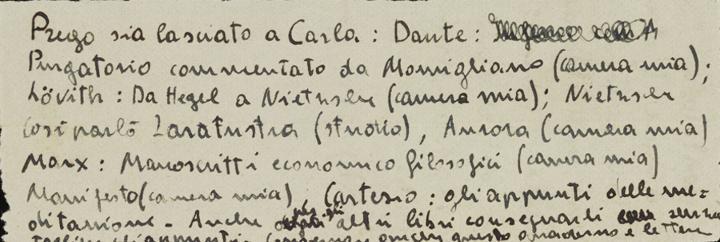 Prego sia lasciato a Carla: Dante:
Purgatorio commentato da Momigliano (camera mia);
Lövith: Da Hegel a Nietzsche (camera mia); Nietzsche
Così parlò Zaratustra (studio), Aurora (camera mia)
Marx: Manoscritti economico filosofici (camera mia)
Manifesto (camera mia), Cartesio: gli appunti delle me=
ditazione. Anche altri libri consegnarli
appunti questo quaderno e lettere